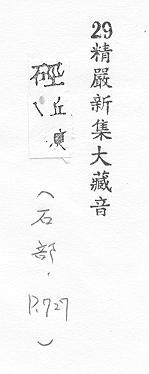 29精嚴新集大藏音
硜丘庾
（石部，P.727）